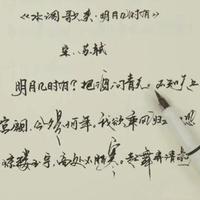 《水调歌头·明月几时有》
宋·苏轼
明月几时有？把酒问青天。不知天上
宫阙，今夕是何年。我欲乘风归
琼楼玉宇，高处不胜寒。起舞弄清